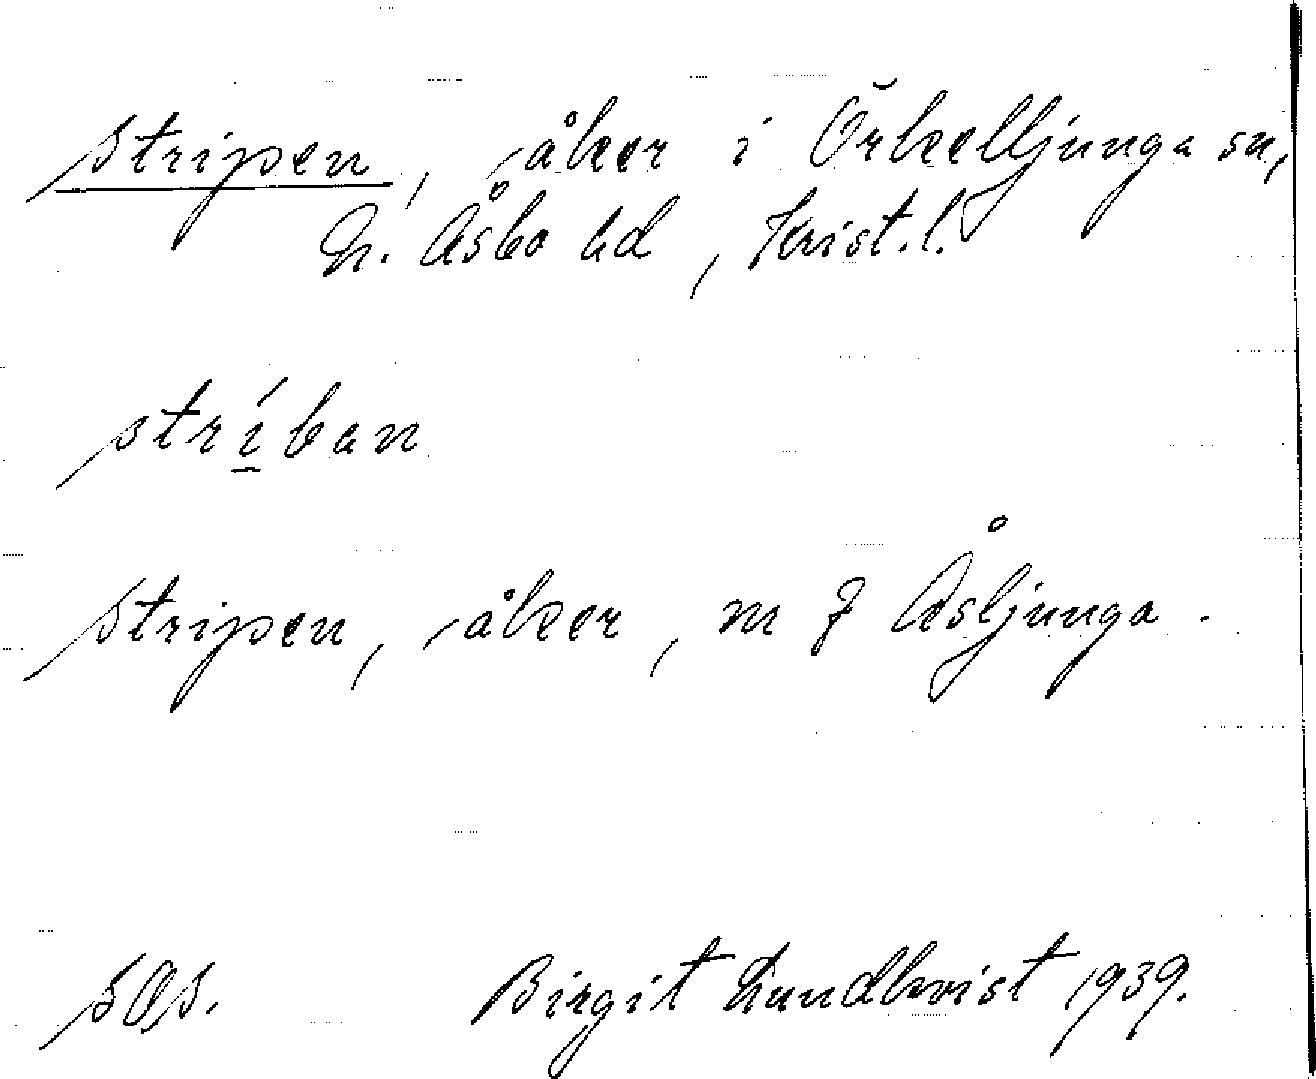 stripen, åker i Örkelljunga sn,
N. Åsbo hd, Krist. l.
strí̲ban
stripen, åker, m f Åsljunga.
SOS. Birgit Lundkvist 1939.